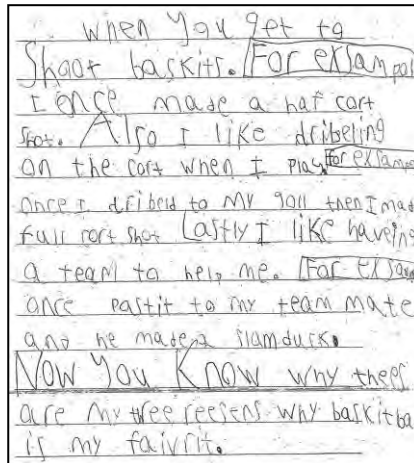 when you get to
Shoot baskits. For exsampol
I once made a haf cort
shot. Also I like dribeling
on the cort when I play. For exsampo
once I dribeld to my goll then I made
full cort shot Lastly I like haveing
a team to help me. For exsam
once pastit to my team mate
and he made a slamdunk.
Now You Know why thees
are my three reesens why baskitba
is my faivrit.